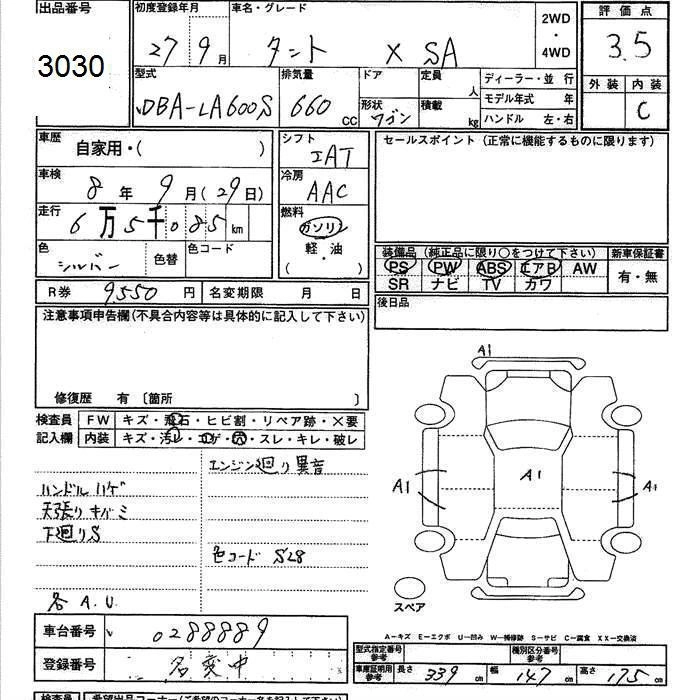 出品番号
3030
初度登録年月
27 9月
車名・グレード
タント X SA
2WD
・
4WD
評価点
3.5
外装 内装
C
型式
DBA-LA600S
排気量
660 CC
ドア
形状
ワゴン
定員 人
積載 kg
ディーラー・並行
モデル年式 年
ハンドル 左・右
車歴
自家用・( )
車検
8年 9月(29日)
走行
6万5千085km
色
シルバー
色替
色コード
シフト
IAT
冷房
AAC
燃料
ガソリン
軽・油
( )
セールスポイント(正常に機能するものに限ります)
装備品(純正品に限り○をつけて下さい)
PS PW ABS エアB AW
SR ナビ TV カワ
新車保証書
有・無
R券 9550円
名変期限 月 日
後日品
注意事項申告欄(不具合内容等は具体的に記入して下さい)
修復歴 有〔箇所 〕
検査員
記入欄
FW キズ・飛石・ヒビ割・リペア跡・×要
内装 キズ・汚レ・コゲ・穴・スレ・キレ・破レ
エンジン廻り異音
ハンドル ハゲ
天張り キバミ
下廻りS
色コード S28
各 A.U.
A1
A1
A1
A1
スペア
車台番号
0288889
登録番号
名変中
A-キズ E-エクボ U-凹み W-補修跡 S-サビ C-腐食 XX-交換済
型式指定番号
参考
種別区分番号
参考
車庫証明用
参考
長さ 339cm
幅 147cm
高さ 175cm
検査員
希望出品コーナー(ご希望のコーナー名を記入して下さい)